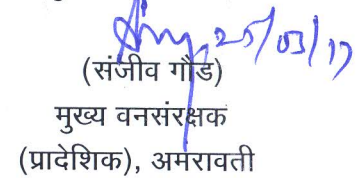 25/03/17
(संजीव गौड)
मुख्य वनसंरक्षक
(प्रादेशिक), अमरावती